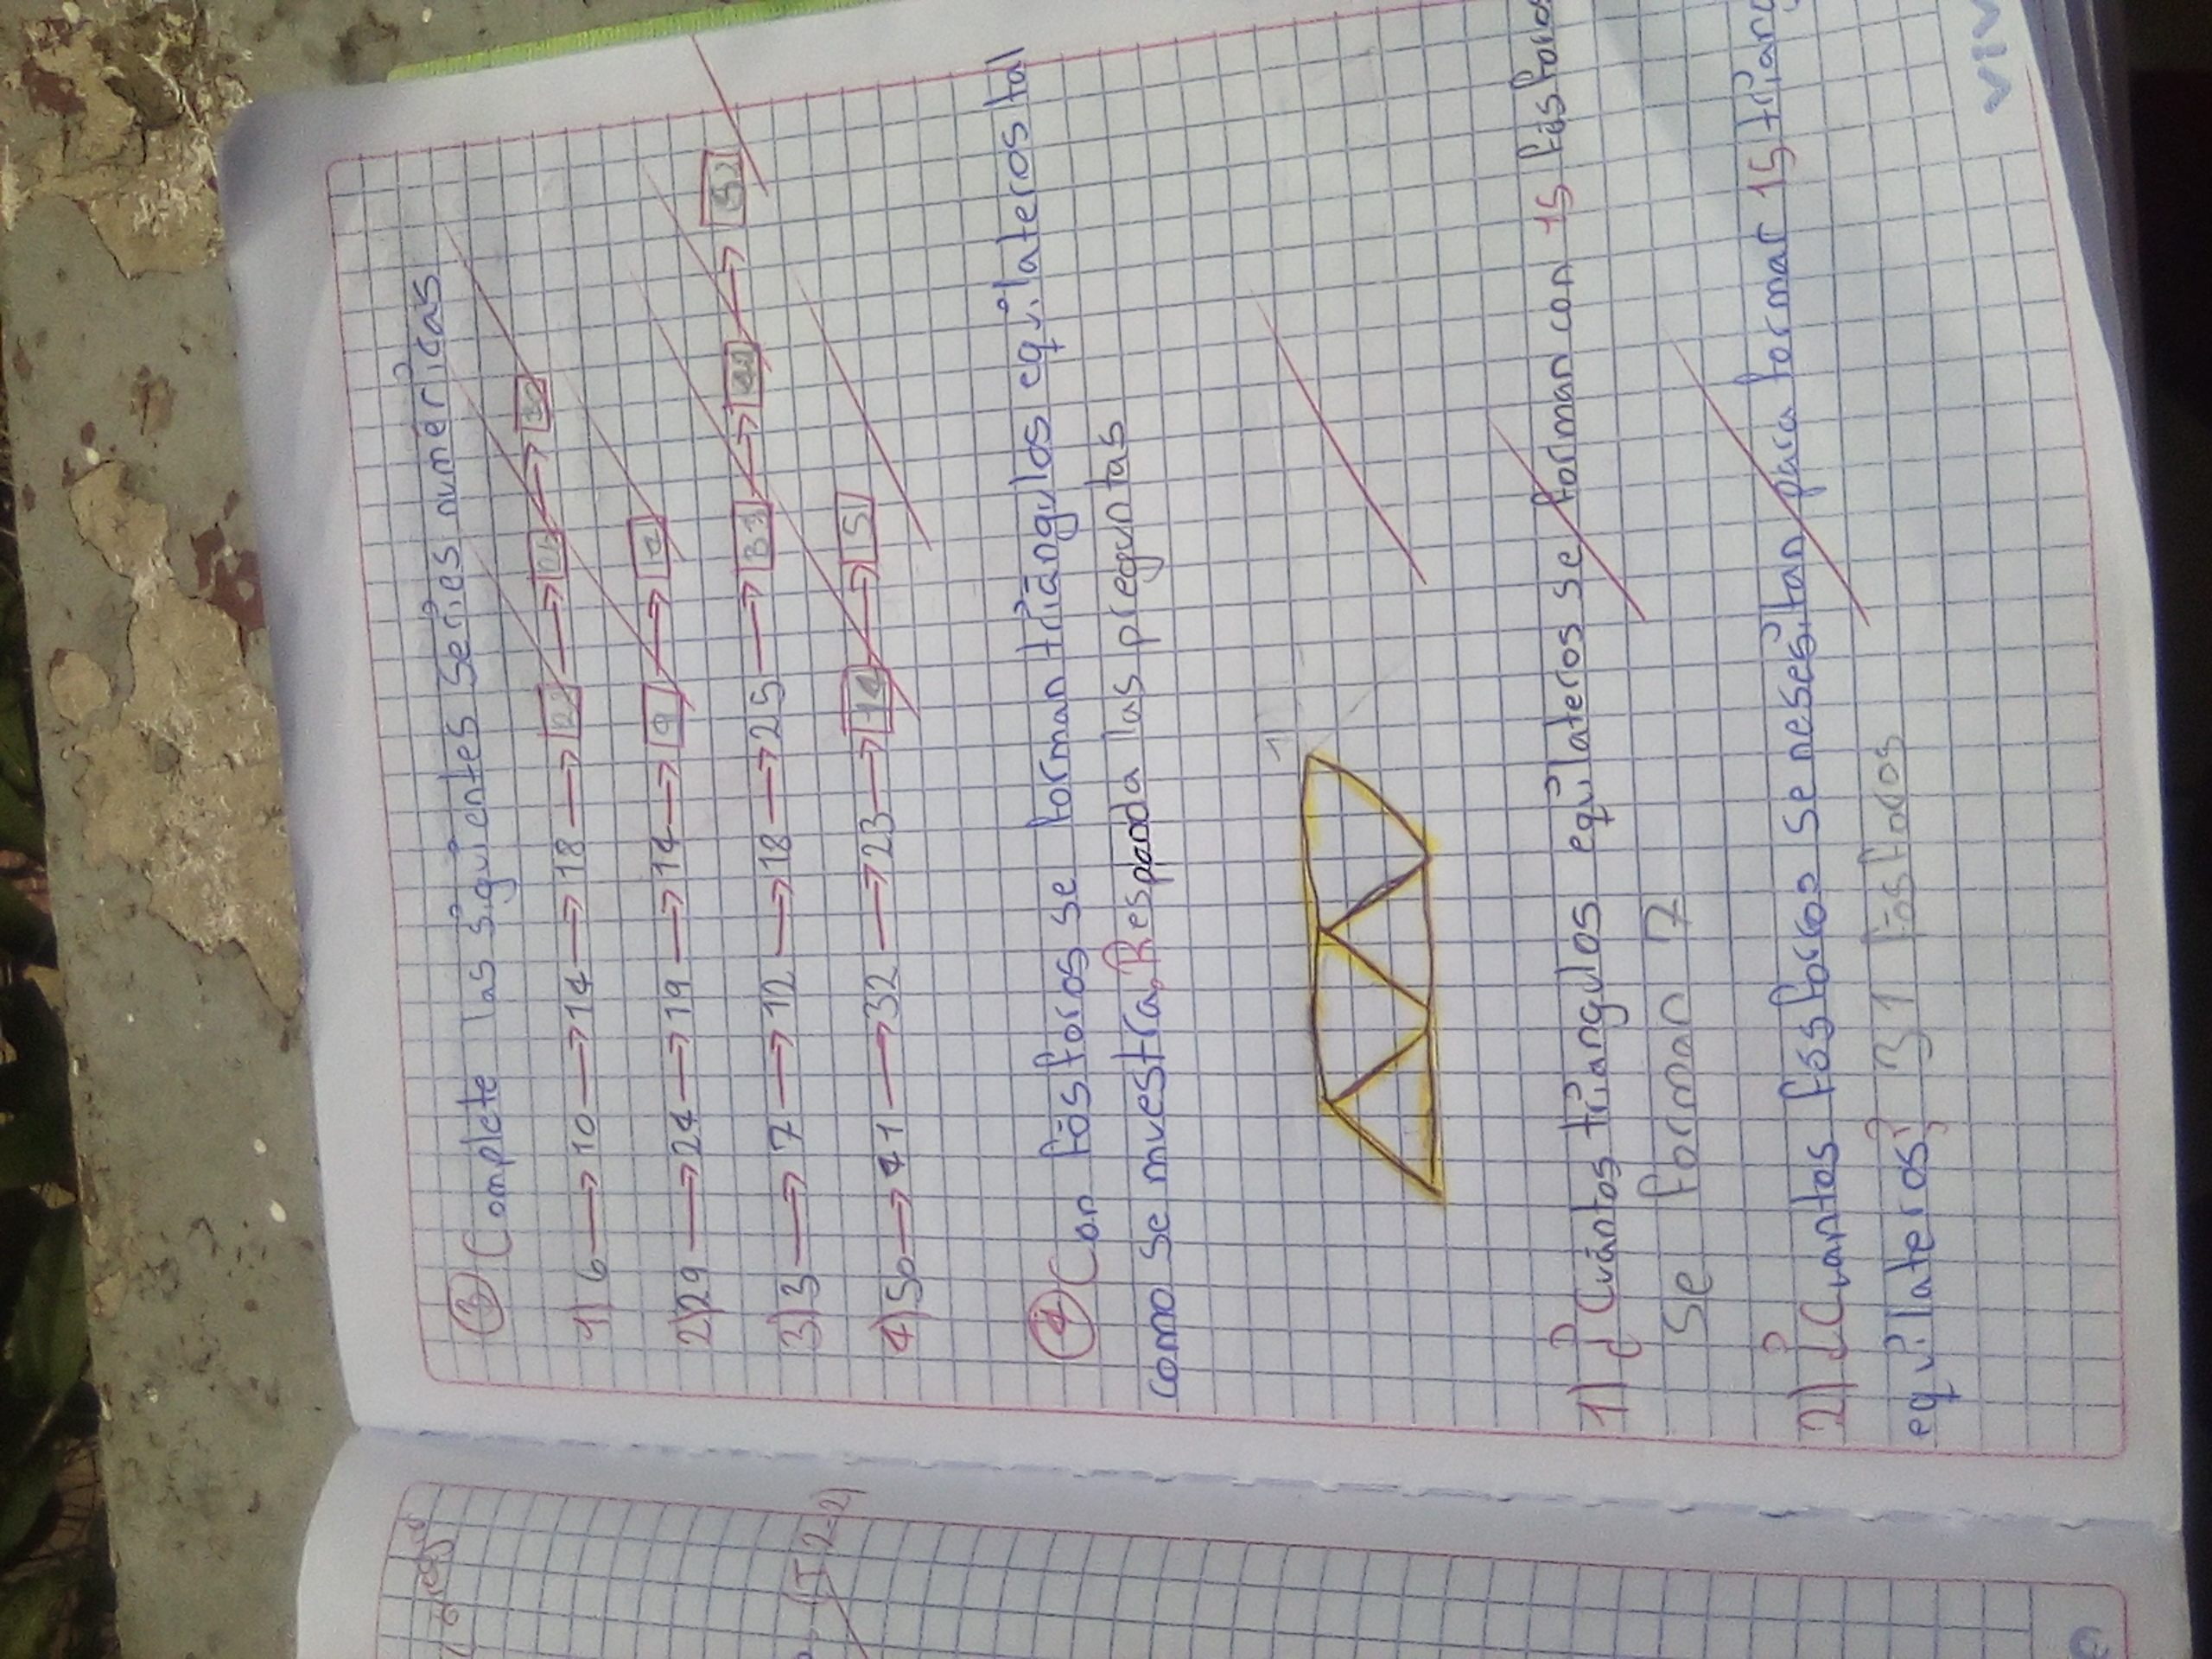 ③ Complete las siguientes series numéricas
1) 6→10→14→18→22→26→30
2) 29→24→19→14→9→4
3) 3→7→12→18→25→33→42→52
4) 50→41→32→23→14→5
④ Con fósforos se forman triángulos equilateros tal
como se muestra, Responda las preguntas
1) ¿Cuántos triangulos equilateros se forman con 15 fósforos
Se forman 7
2) ¿Cuantos fósforos se nesesitan para formar 15
equilateros? 31 fósforos
VIV
(T 2-2)